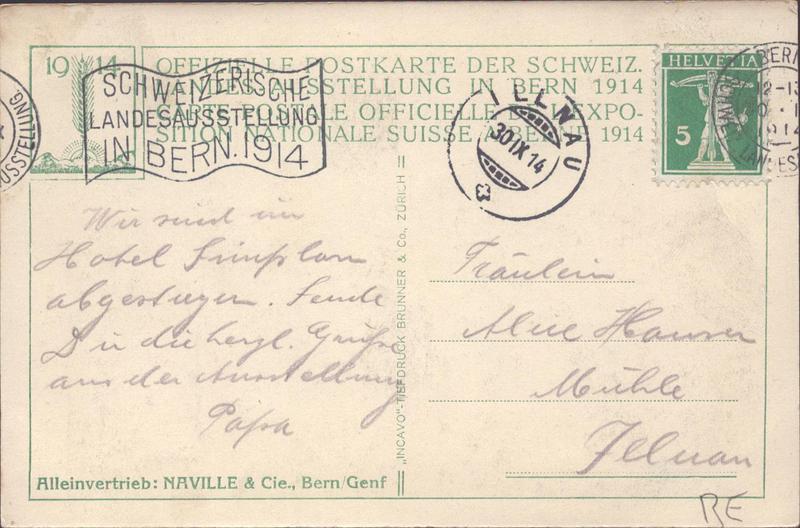 1914
OFFIZIELLE POSTKARTE DER SCHWEIZ.
LANDESAUSSTELLUNG IN BERN 1914
CARTE POSTALE OFFICIELLE DE L'EXPO-
SITION NATIONALE SUISSE A BERNE 1914
SCHWEIZERISCHE
LANDESAUSSTELLUNG
IN BERN.1914
ILLNAU
30 IX 14
HELVETIA
5
BERN
Wir sind im
Hotel Simplon
abgestiegen. Sende
Dir die herzl. Grüße
aus der Ausstellung
Papa
Fräulein
Alice Hauser
Mühle
Illnau
„INCAVO"-TIEFDRUCK BRUNNER & Co., ZÜRICH
Alleinvertrieb: NAVILLE & Cie., Bern/Genf
RE